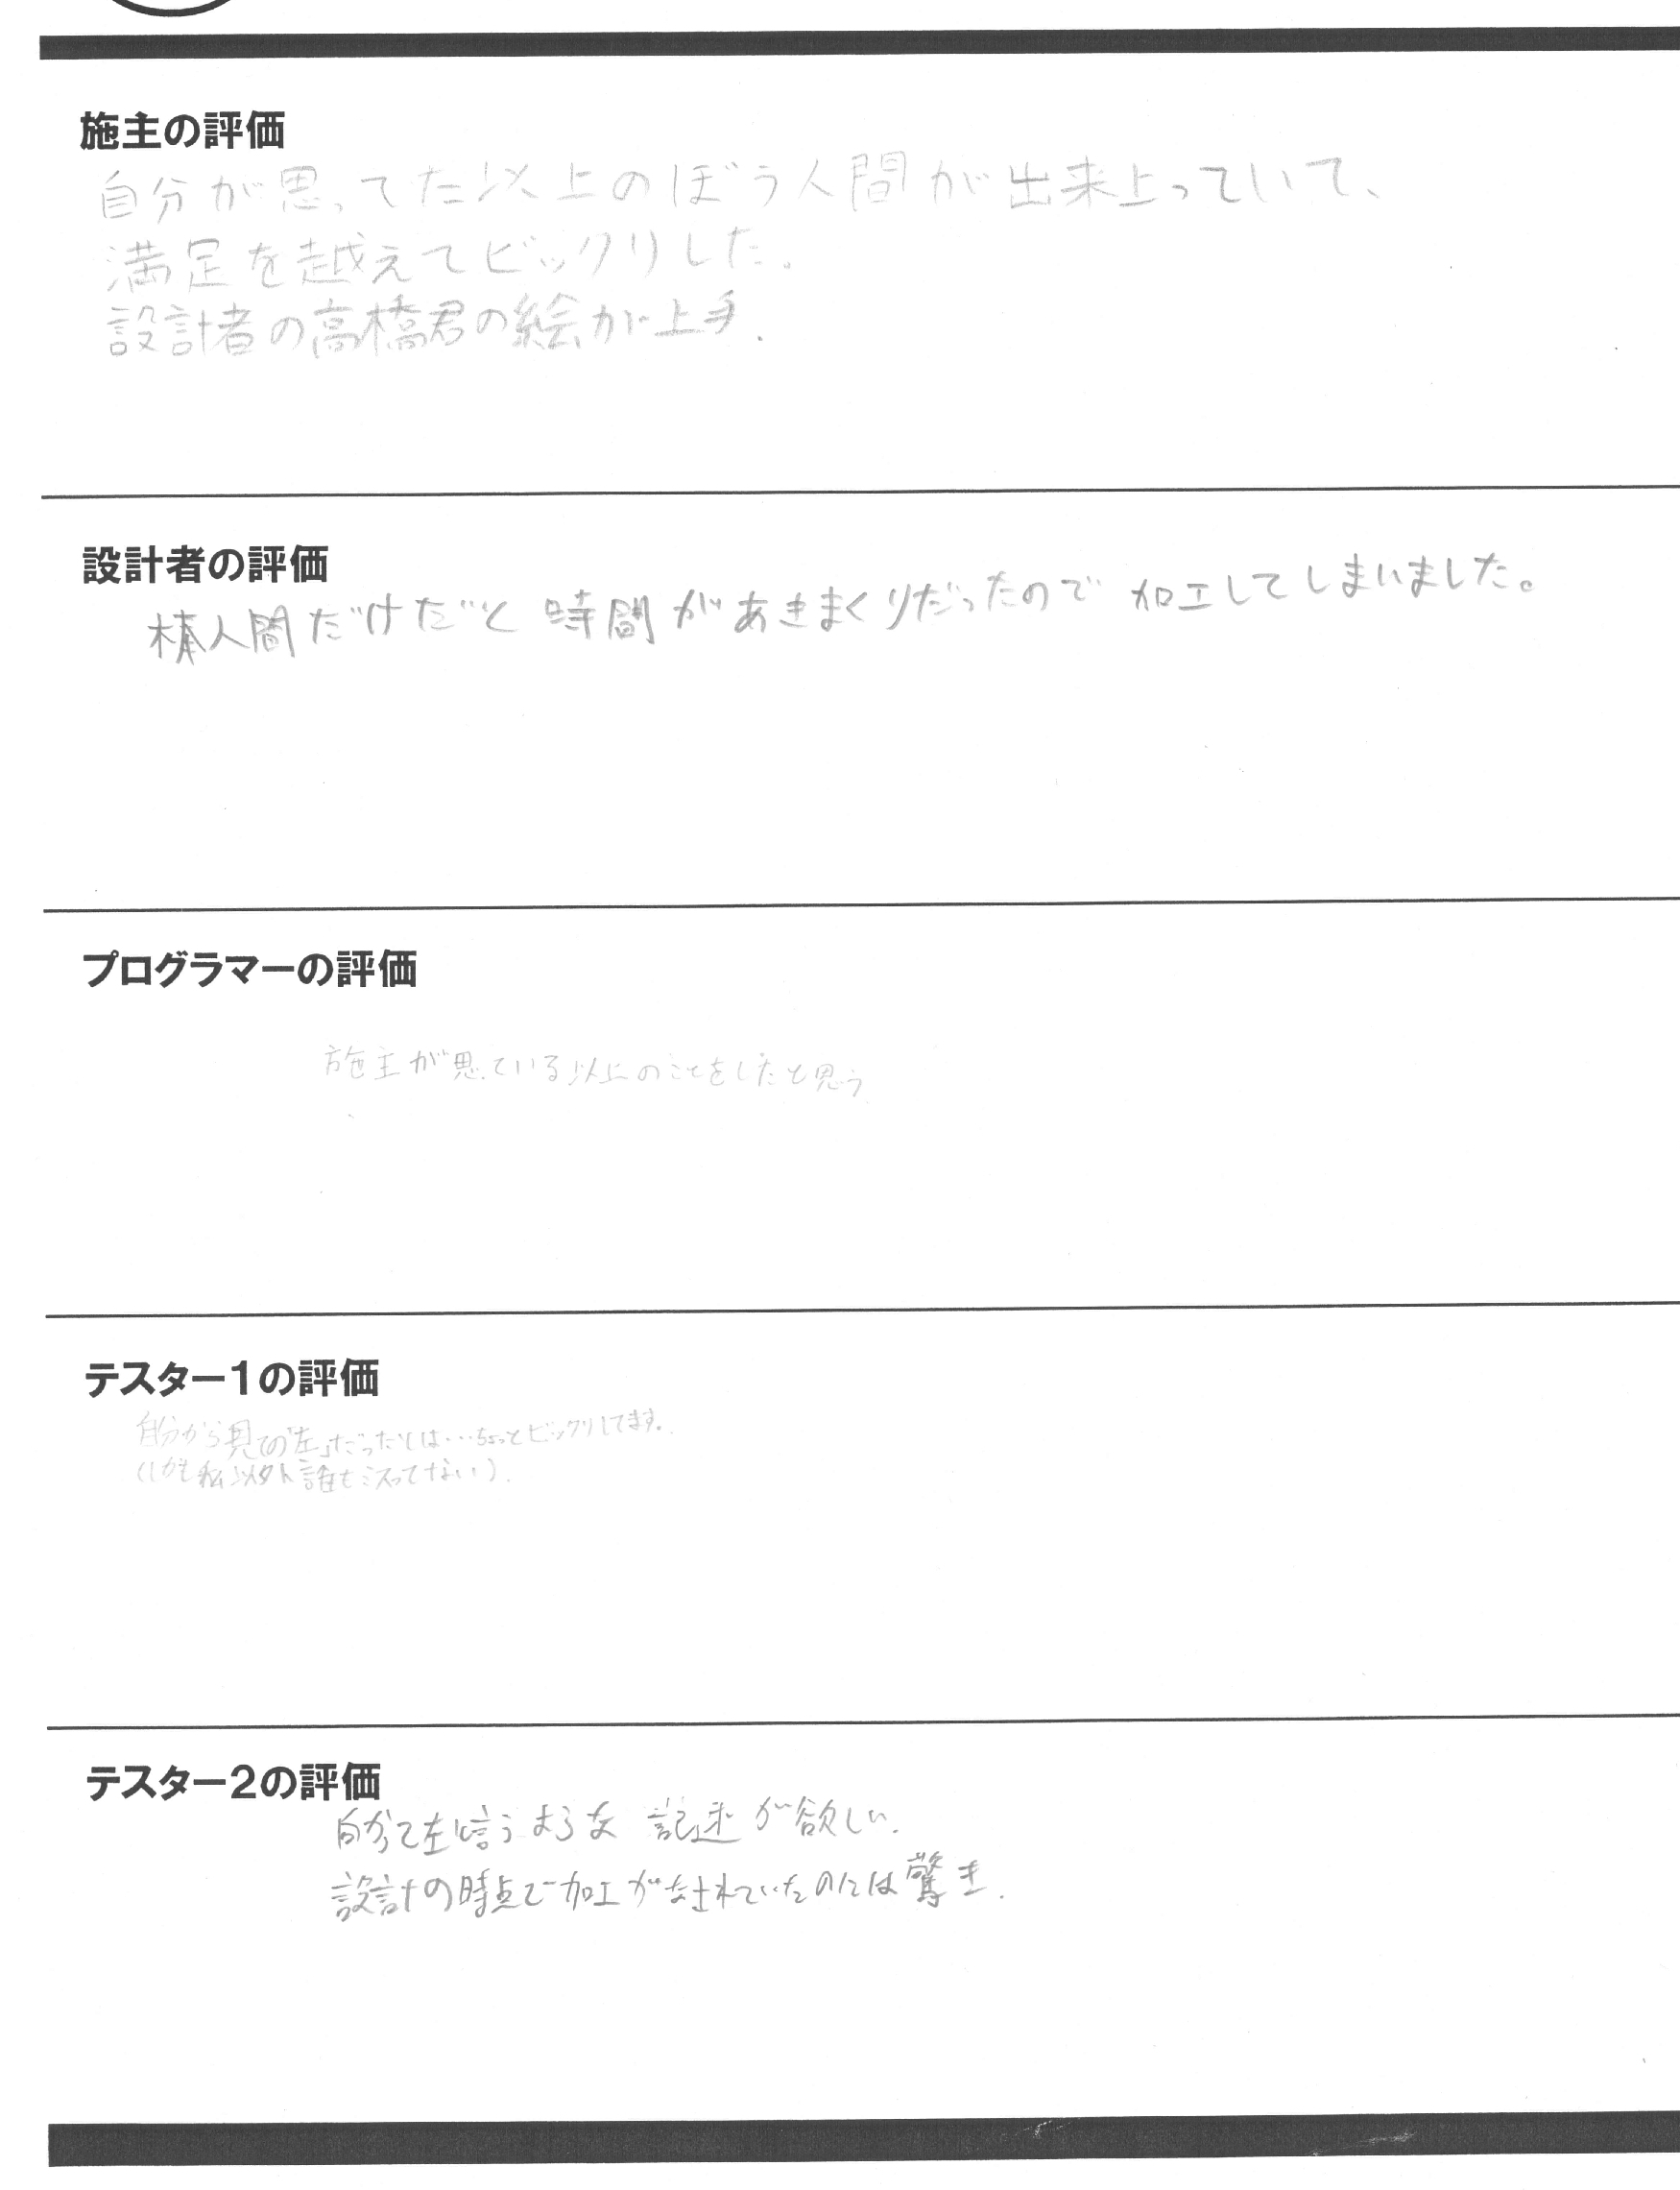 施主の評価
自分が思ってた以上のぼう人間が出来上っていて、
満足を越えてビックリした。
設計者の高橋君の絵が上手.
設計者の評価
棒人間だけだと時間があきまくりだったので加工してしまいました。
プログラマーの評価
施主が思ている以上のことをしたと思う
テスター1の評価
自分から見ての「左」だったとは…ちょっとビックリしてます。
(しかも私以外誰もミスってない).
テスター2の評価
左 言うような 記述が欲しい.
設計の時点で加工がなされていたのには驚き.